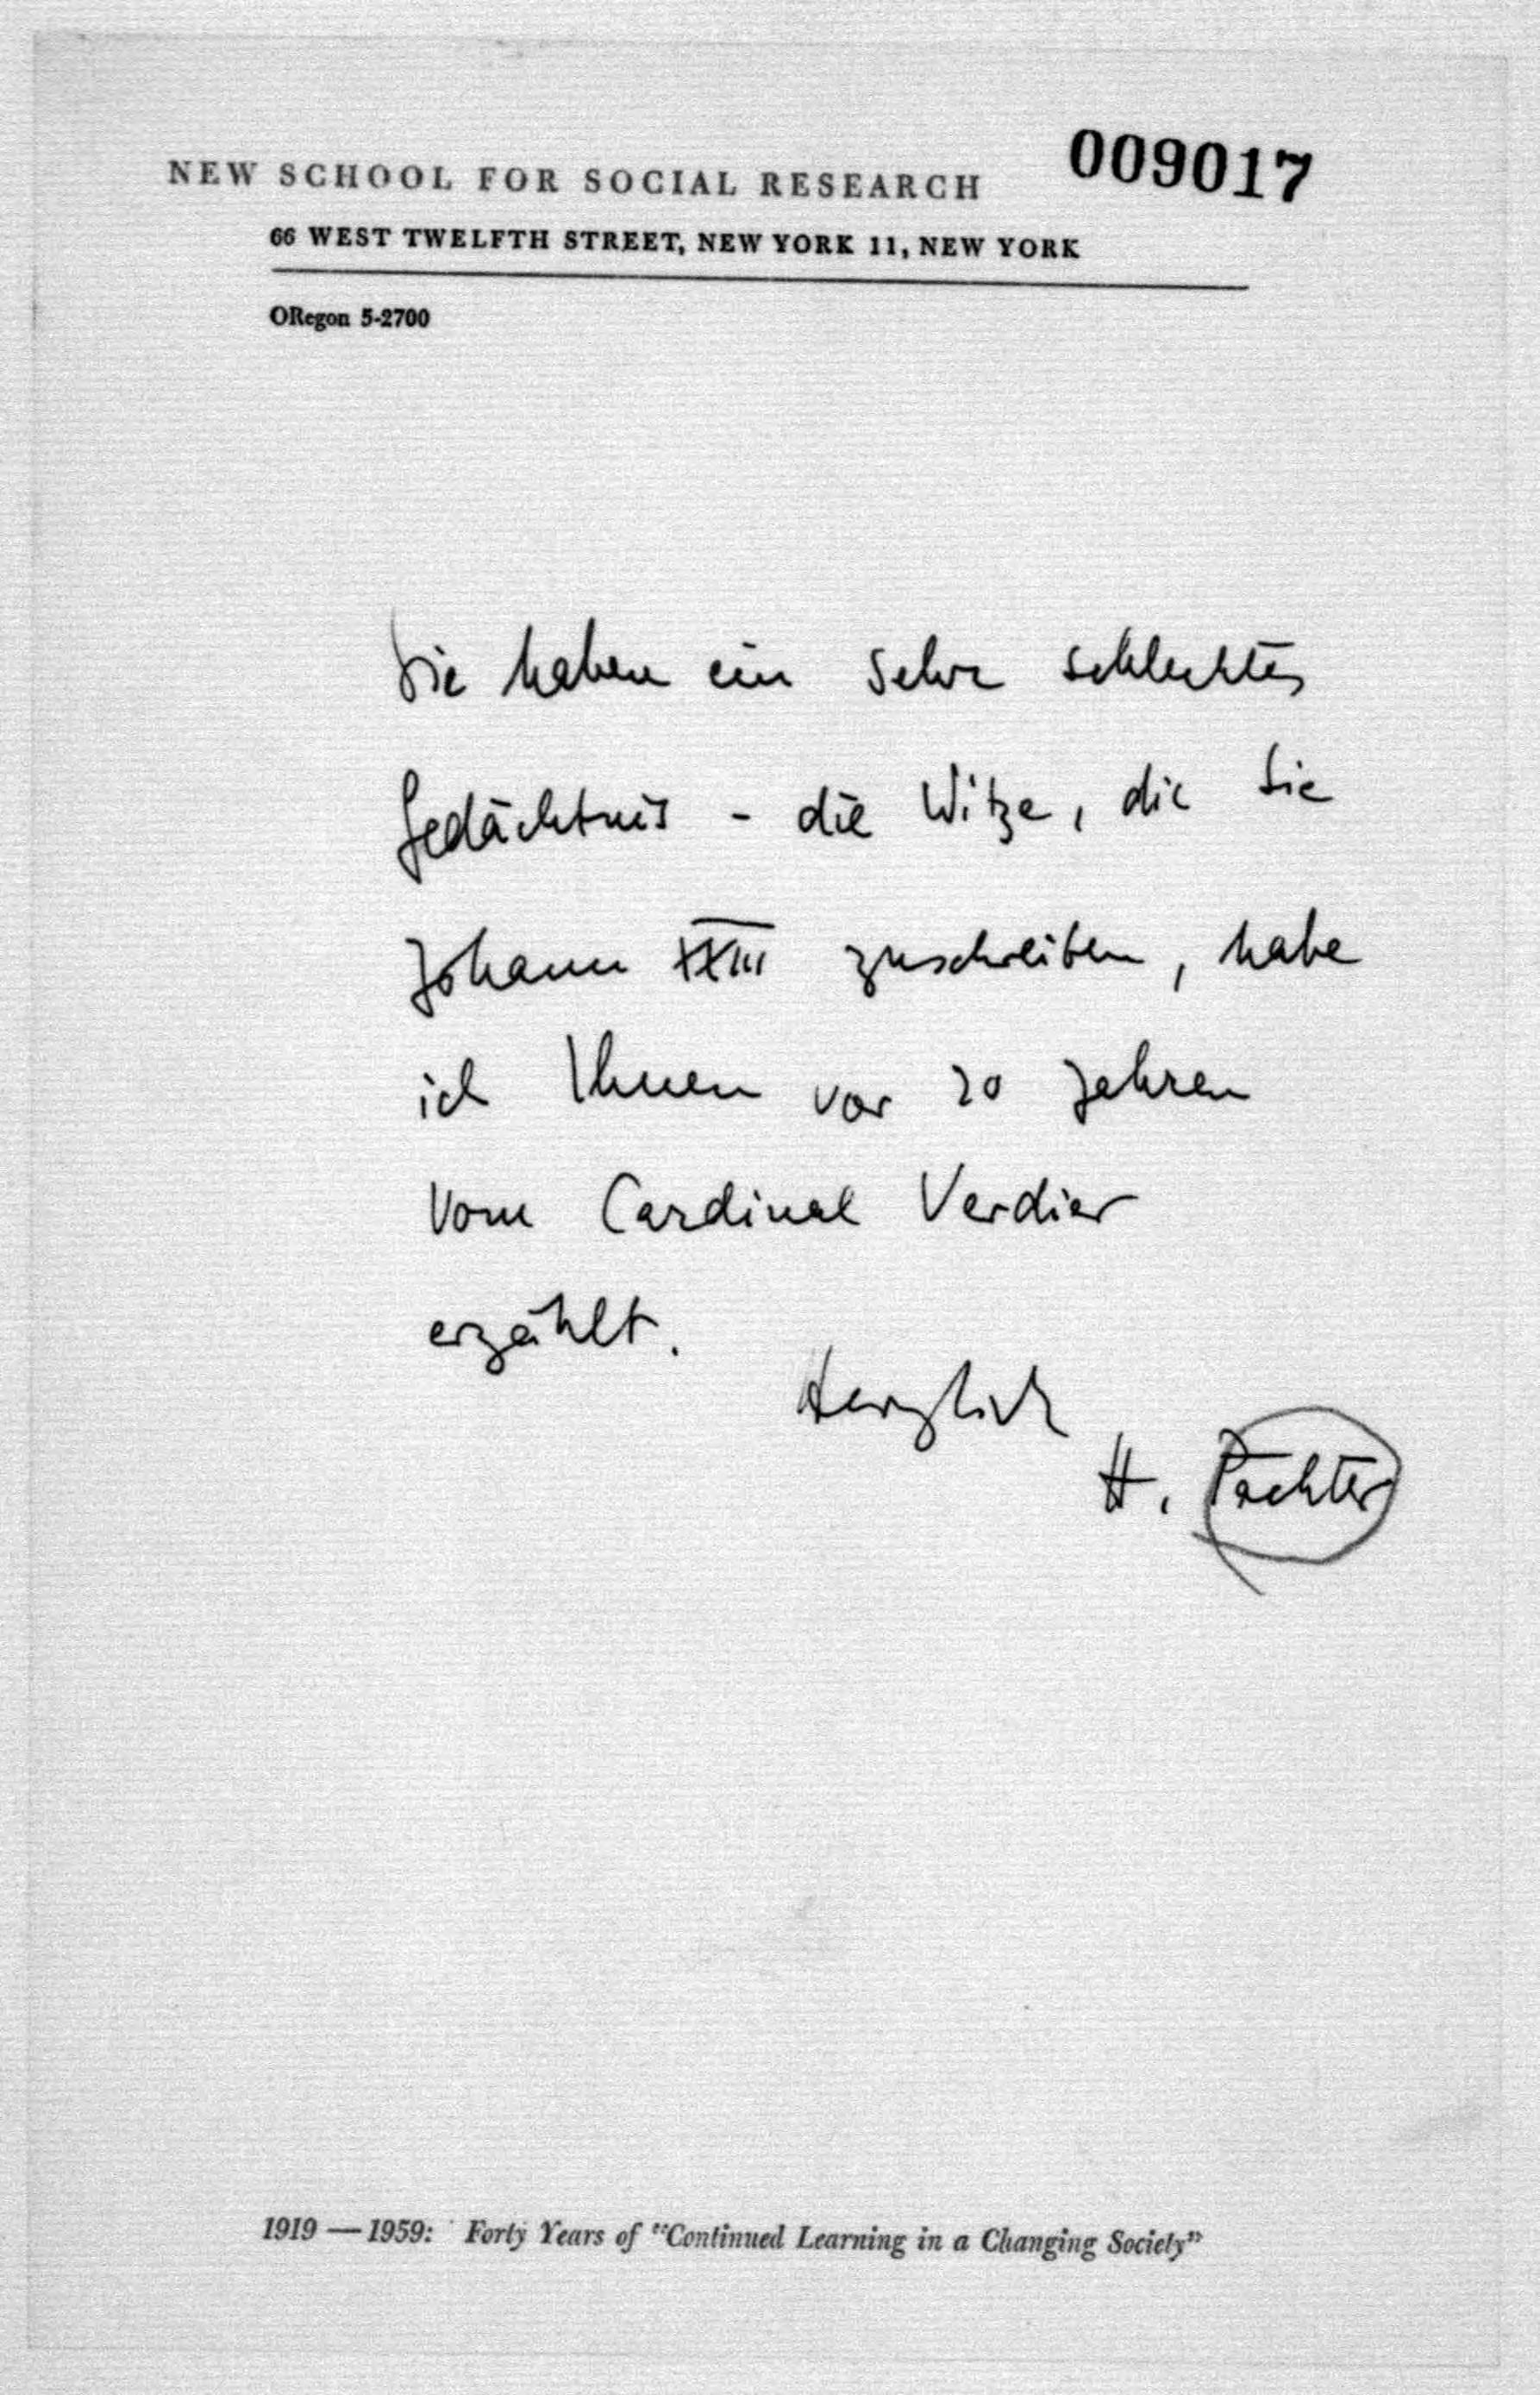 NEW SCHOOL FOR SOCIAL RESEARCH
009017
66 WEST TWELFTH STREET, NEW YORK 11, NEW YORK
ORegon 5-2700
Sie haben ein sehr schlechtes
Gedächtnis - die Witze, die Sie
Johann XXIII zuschreiben, habe
ich Ihnen vor 20 Jahren
vom Cardinal Verdier
erzählt.
Herzlich
H. Pachter
1919 — 1959: Forty Years of "Continued Learning in a Changing Society"